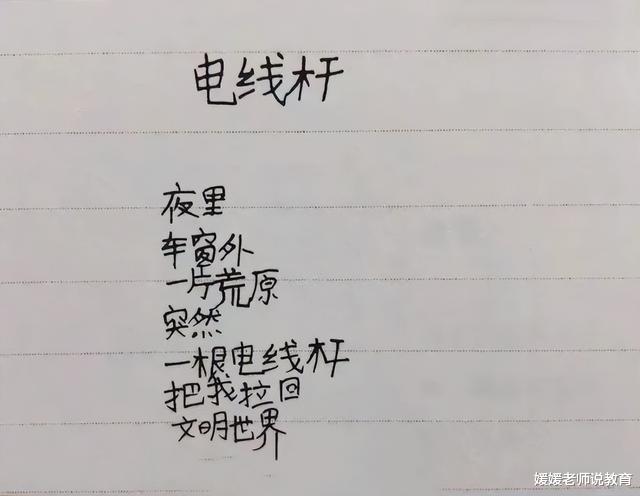 电线杆
夜里
车窗外
一片荒原
突然
一根电线杆
把我拉回
文明世界
媛媛老师说教育